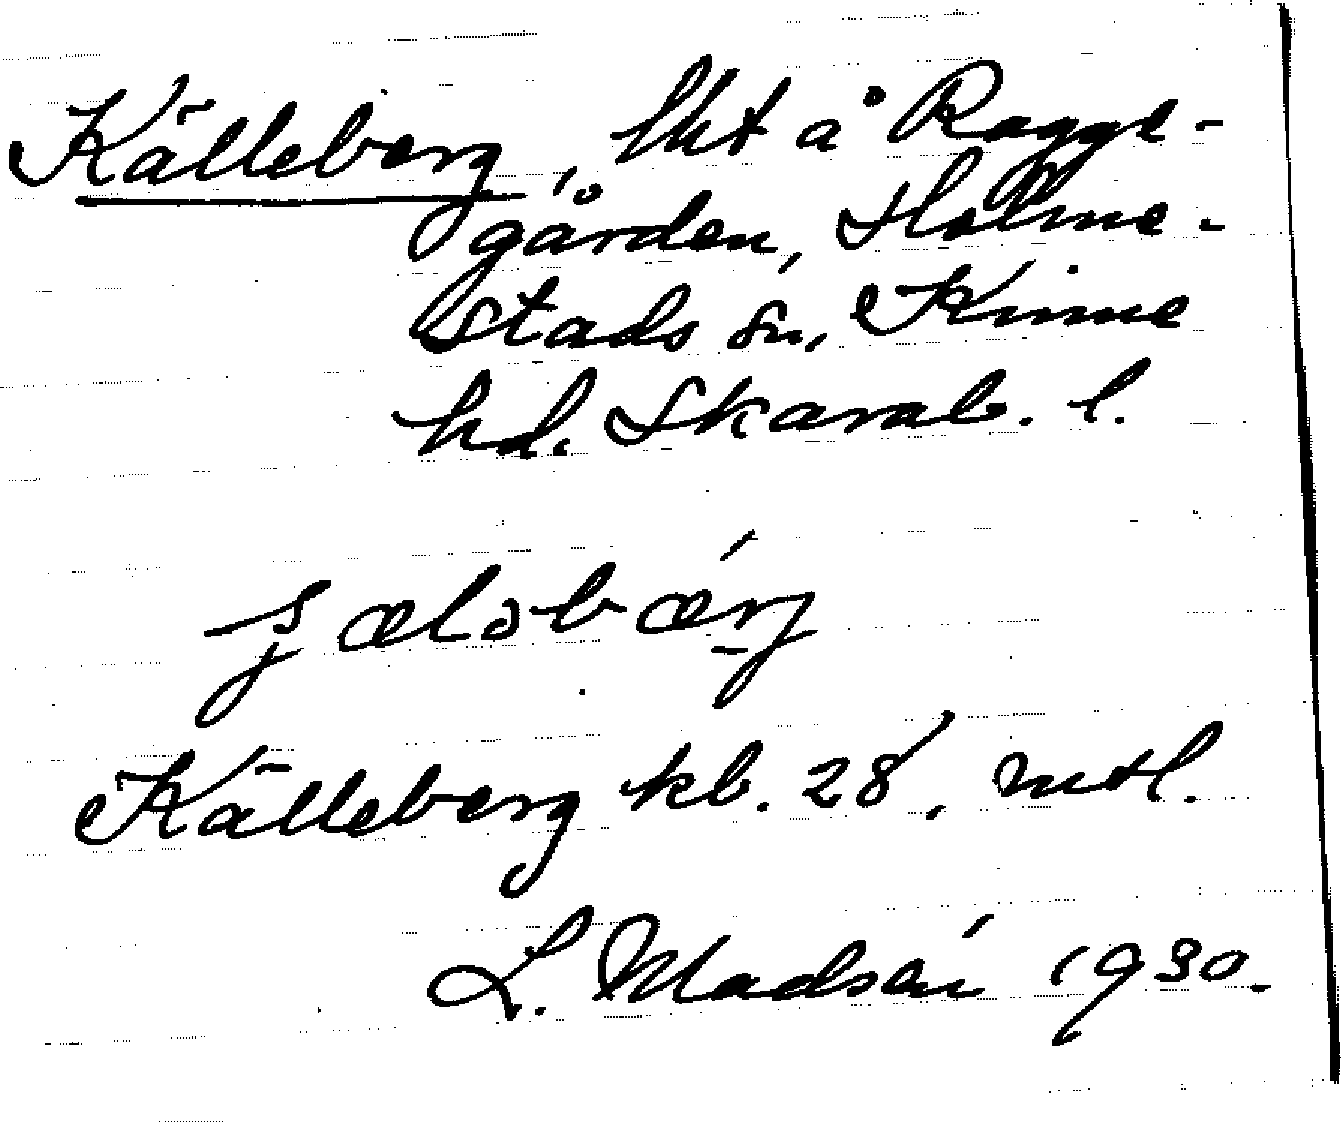 Källeberg, lht å Ragge-
gården, Holme-
stads sn, Kinne
hd. Skarab. l.
Källeberg kb. 28, mtl.
L. Madsén 1930.